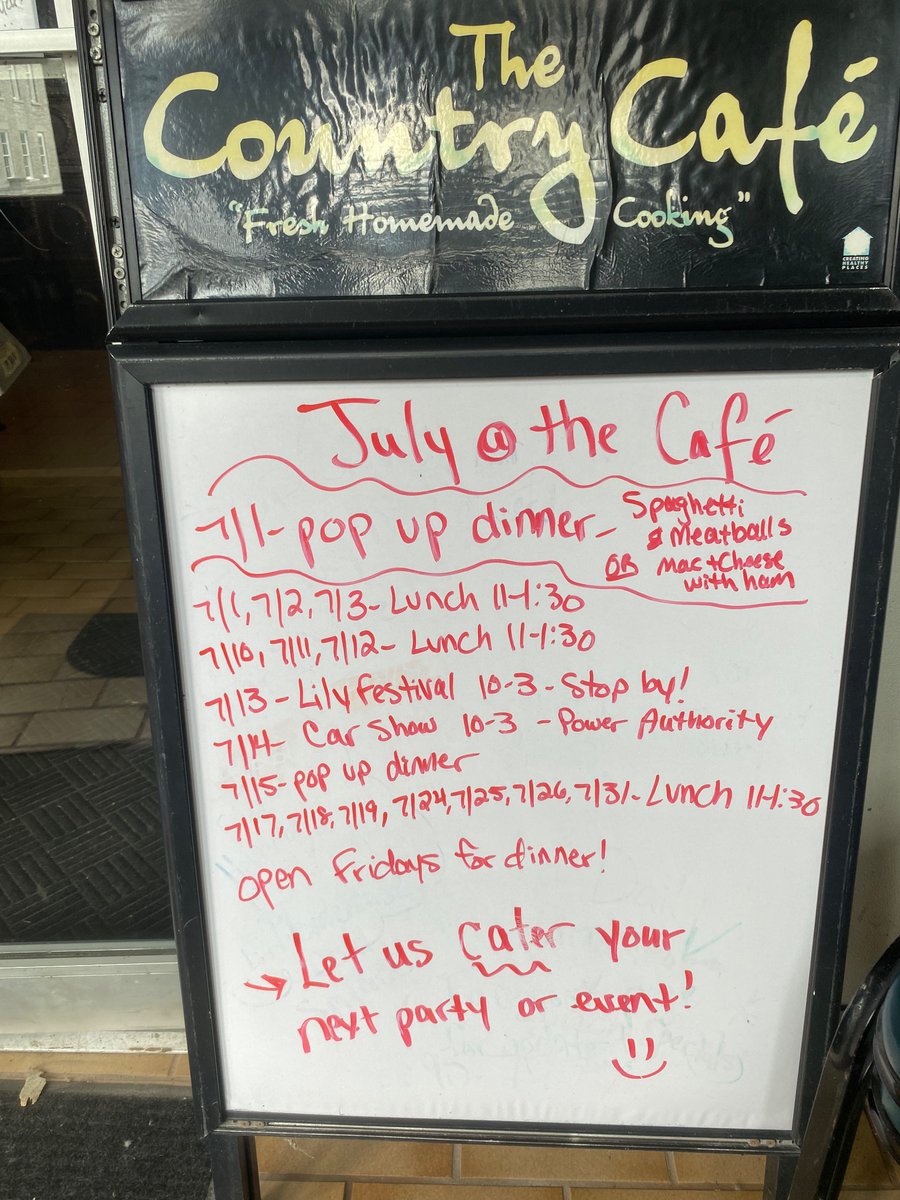 The
Country Café
"Fresh Homemade Cooking"
CREATING
HEALTHY
PLACES
July @ the Café
7/1- pop up dinner- Spaghetti
& Meatballs
OR mac + Cheese
with ham
7/1, 7/2, 7/3- Lunch 11-1:30
7/10, 7/11, 7/12- Lunch 11-1:30
7/13 - Lily Festival 10-3 - Stop by!
7/14- Car Show 10-3 - Power Authority
7/15- pop up dinner
7/17, 7/18, 7/19, 7/24, 7/25, 7/26, 7/31- Lunch 11-1:30
open Fridays for dinner!
→ Let us cater your
next party or event!